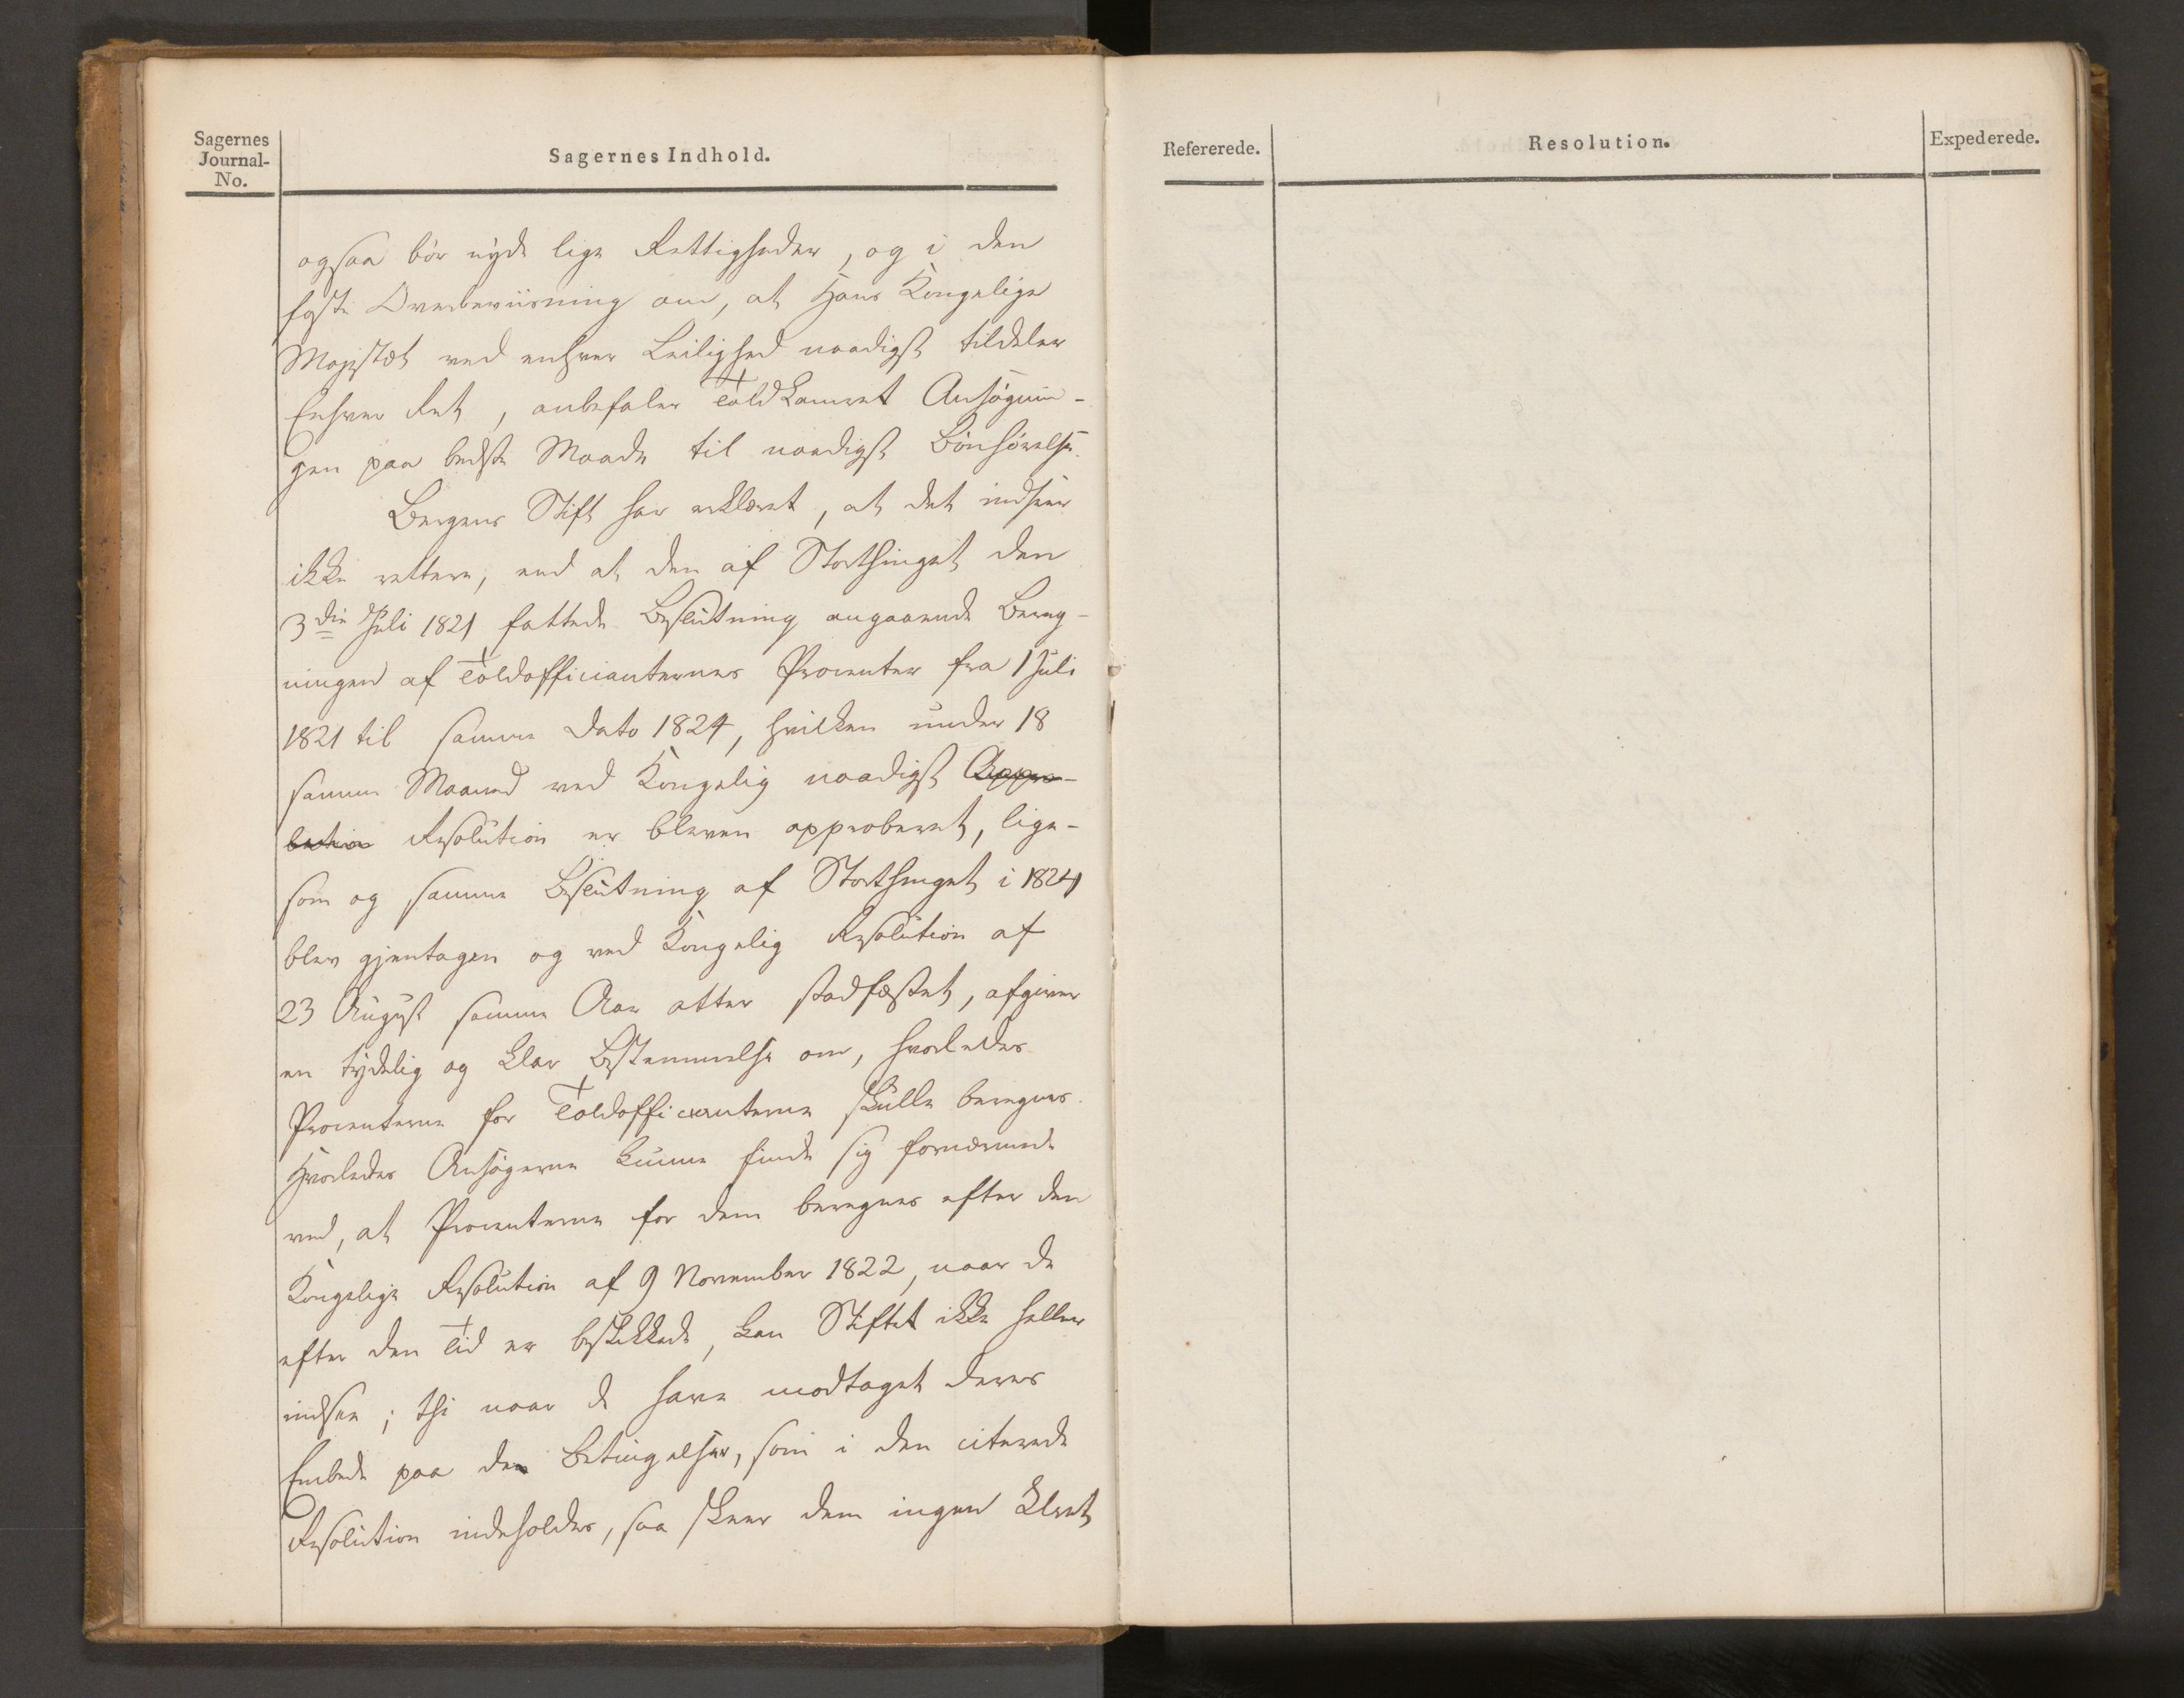 Sagernes
Journal-
No.
Sagernes Indhold.
Refererede.
Resolution.
Expederede.
ogsaa bör nyde lige Rettigheder, og i den
faste Overbeviisning om, at Hans Kongelige
Majestæt ved enhver Leilighed naadigst tildeler
Enhver Ret, anbefaler Toldkamret Ansögnin-
gen paa bedste Maade til naadigst Bönhörelse.
Bergens Stift har erklæret, at det indseer
ikke rettere, end at den af Storthinget den
3die Juli 1821 fattede Beslutning angaaende Bereg-
ningen af Toldofficianternes Procenter fra 1 Juli
1821 til samme Dato 1824, hvilken under 18
samme Maaned ved Kongelig naadigst Appro-
bation Resolution er bleven approberet, lige-
som og samme Beslutning af Storthinget i 1824
blev gjentagen og ved Kongelig Resolution af
23 August samme Aar atter stadfæstet, afgiver
en tydelig og klar Bestemmelse om, hvorledes
Procenterne for Toldofficianterne skulle beregnes.
Hvorledes Ansögerne kunne finde sig fornærmede
ved, at Procenterne for dem beregnes efter den
Kongelige Resolution af 9 November 1822, naar de
efter den Tid er beskikkede, kan Stiftet ikke heller
indsee; thi naar de have modtaget deres
Embede paa den Betingelser, som i den citerede
Resolution indeholdes, saa skeer dem ingen Uret